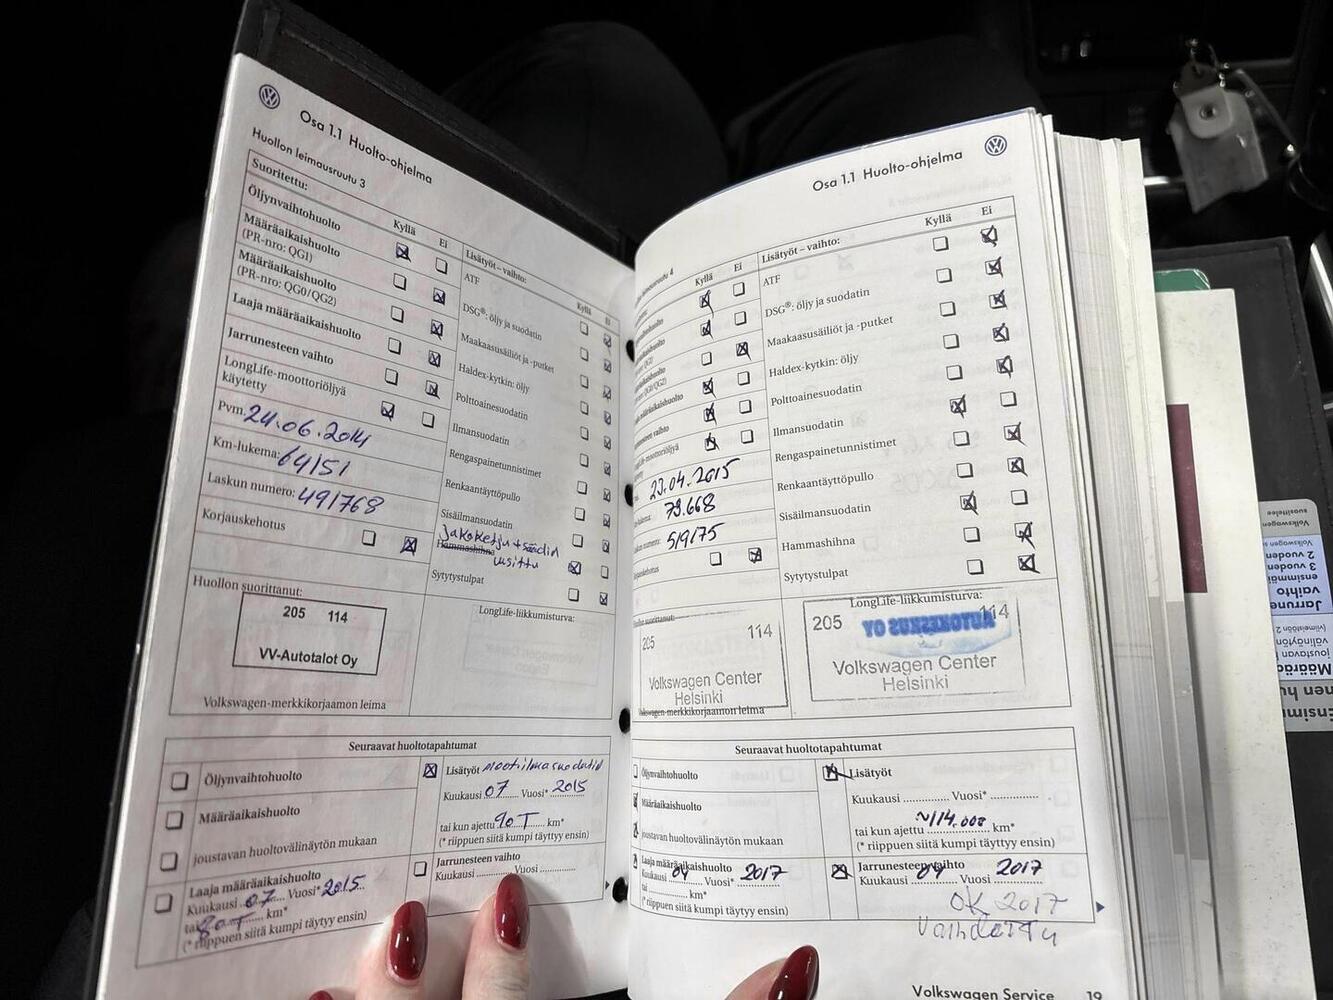 Osa 1.1 Huolto-ohjelma
Huollon leimausruutu 3
Suoritettu:
Kyllä Ei
Öljynvaihtohuolto
Määräaikaishuolto
(PR-nro: QG1)
Määräaikaishuolto
(PR-nro: QG0/QG2)
Laaja määräaikaishuolto
Jarrunesteen vaihto
LongLife-moottoriöljyä
käytetty
Pvm. 24.06.2014
Km-lukema: 64151
Laskun numero: 491768
Korjauskehotus
Lisätyöt – vaihto:
Kyllä Ei
ATF
DSG®: öljy ja suodatin
Maakaasusäiliöt ja -putket
Haldex-kytkin: öljy
Polttoainesuodatin
Ilmansuodatin
Rengaspainetunnistimet
Renkaantäyttöpullo
Sisäilmansuodatin
Jakoketju + säädin
Hammashihna uusittu
Sytytystulpat
Huollon suorittanut:
205 114
VV-Autotalot Oy
Volkswagen-merkkikorjaamon leima
LongLife-liikkumisturva:
Seuraavat huoltotapahtumat
Öljynvaihtohuolto
Määräaikaishuolto
joustavan huoltovälinäytön mukaan
Laaja määräaikaishuolto
Kuukausi 07 Vuosi* 2015
tai 80T km*
(* riippuen siitä kumpi täytyy ensin)
Lisätyöt
Kuukausi 07 Vuosi* 2015
tai kun ajettu 90T km*
(* riippuen siitä kumpi täyttyy ensin)
Jarrunesteen vaihto
Kuukausi Vuosi
Osa 1.1 Huolto-ohjelma
4
Kyllä Ei
23.04.2015
79.668
519175
Lisätyöt – vaihto:
Kyllä Ei
ATF
DSG®: öljy ja suodatin
Maakaasusäiliöt ja -putket
Haldex-kytkin: öljy
Polttoainesuodatin
Ilmansuodatin
Rengaspainetunnistimet
Renkaantäyttöpullo
Sisäilmansuodatin
Hammashihna
Sytytystulpat
205 114
Volkswagen Center
Helsinki
Volkswagen-merkkikorjaamon leima
LongLife-liikkumisturva:
205 114
AUTOKESKUS OY
Volkswagen Center
Helsinki
Seuraavat huoltotapahtumat
Öljynvaihtohuolto
Määräaikaishuolto
joustavan huoltovälinäytön mukaan
Laaja määräaikaishuolto
Kuukausi 04 Vuosi* 2017
tai km*
(* riippuen siitä kumpi täytyy ensin)
Lisätyöt
Kuukausi Vuosi*
tai kun ajettu ~114.000 km*
(* riippuen siitä kumpi täyttyy ensin)
Jarrunesteen vaihto
Kuukausi 04 Vuosi 2017
OK 2017
Vaihdettu
Volkswagen Service 19